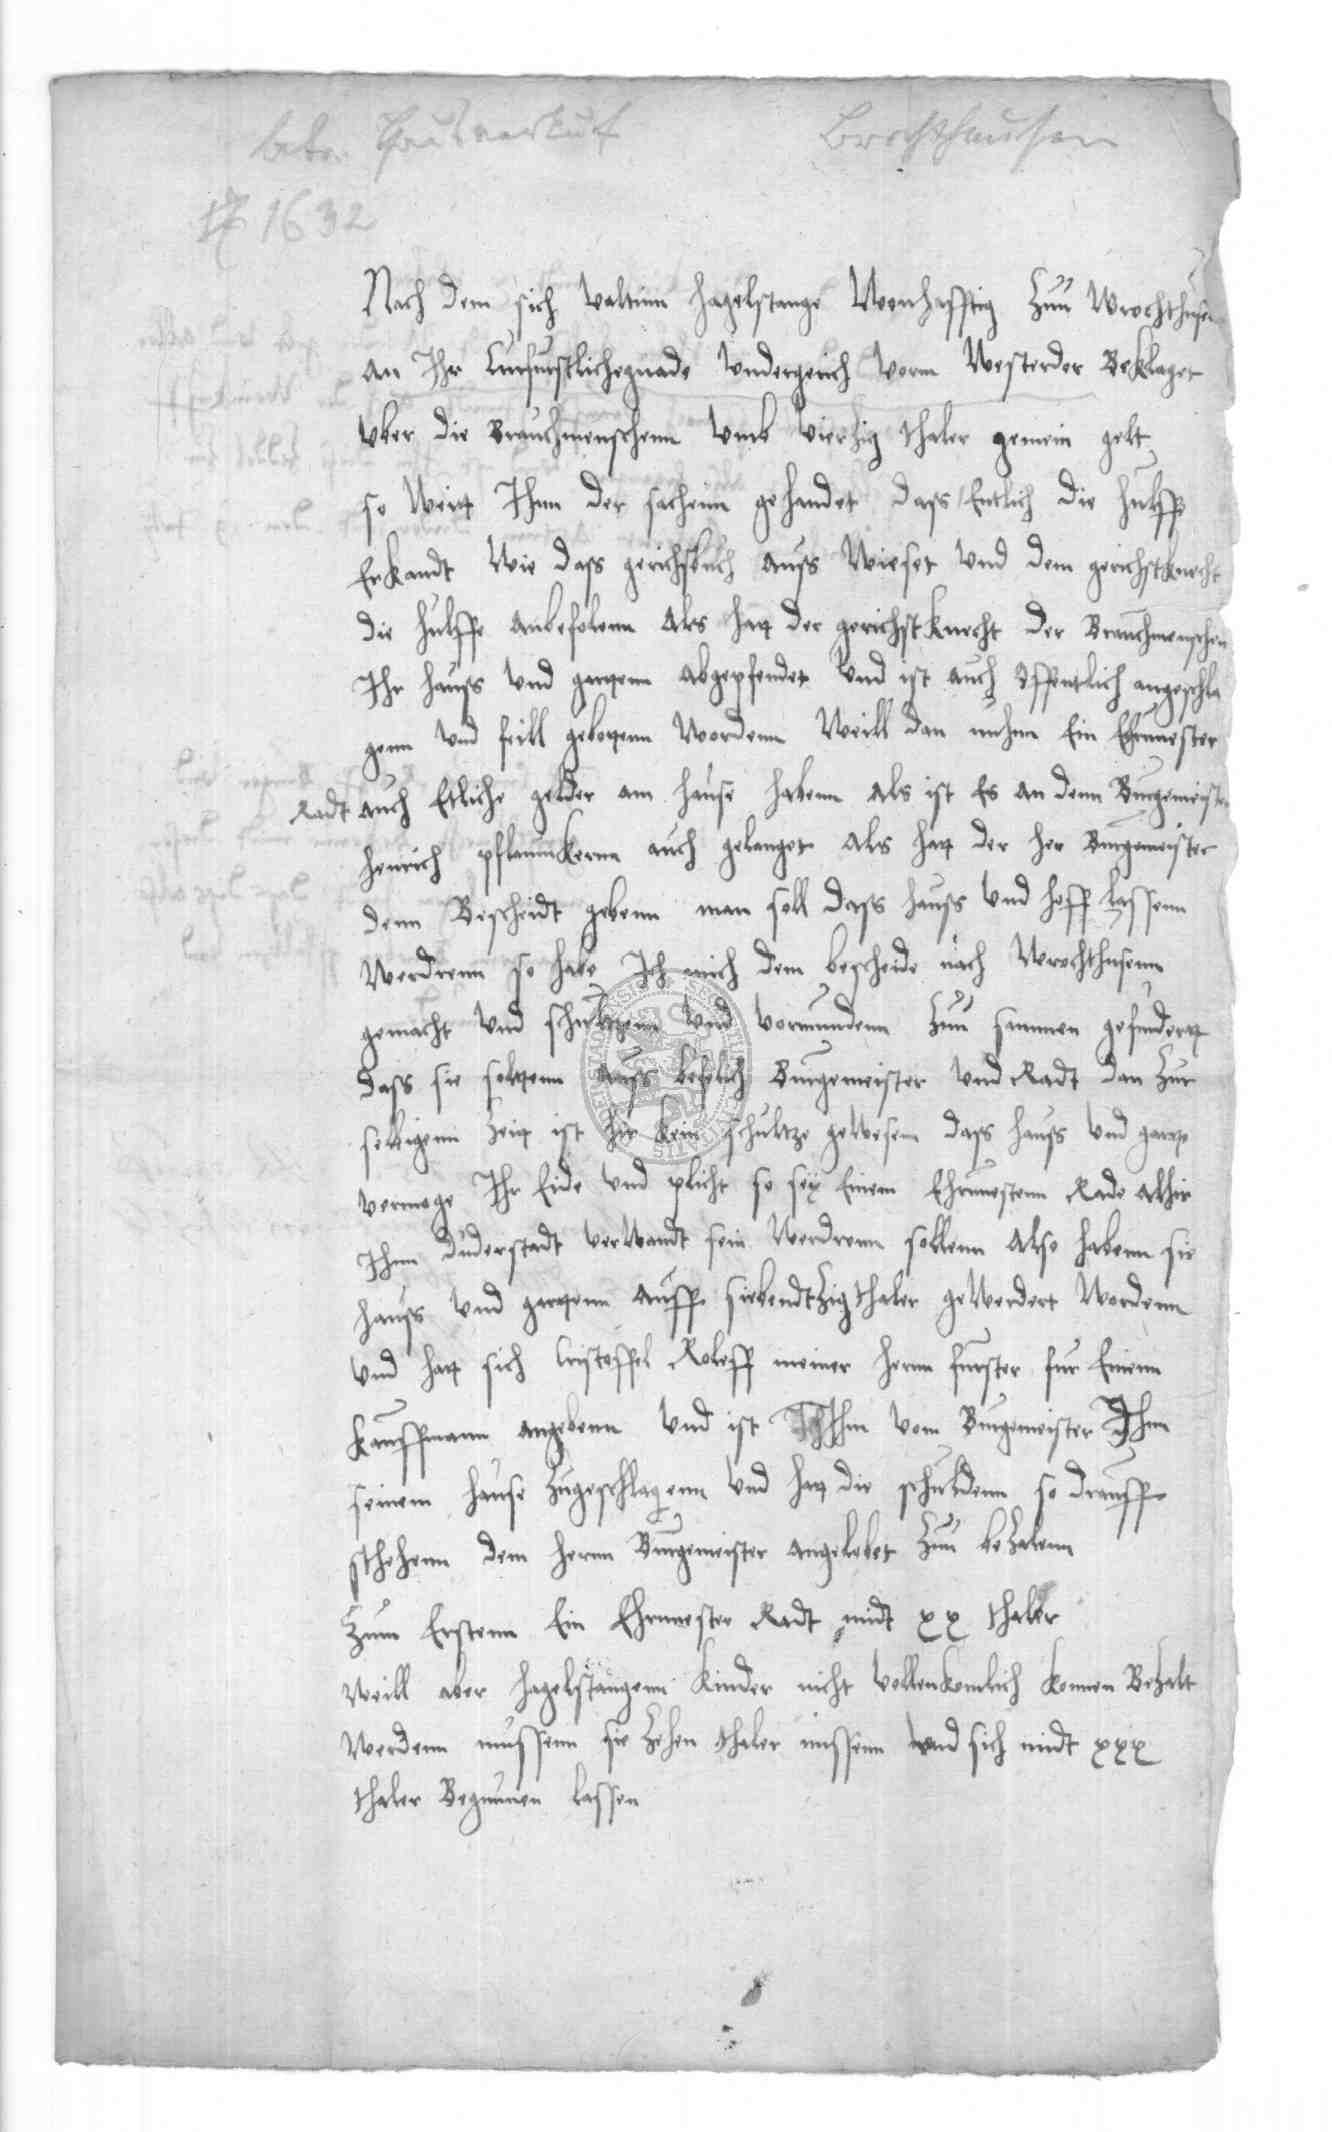 betr. Hausverkauf Brochthausen
1632
Nach dem sich Valtinn Hagelstange Wonhafftig Zuu Wrochthusen
an Ihr Curfurstlichegnade Undergerich vorm Westerder Beklaget
uber die Brauchmenschenn umb viertzig thaler gemein gelt
so weitt Ihnn der sachenn gehandet dass Entlich die hulff
Erkandt Wie dass gerichsbuch auss Wieset und dem gerichstknecht
die hulffe anbefolenn Als hatt der gerichstknecht der Brauchmenschen
Ihr hauss und gartenn abgepfendet und ist auch offentlich angeschla
genn und feill gebottenn Wordenn Weill dan nuhnn Ein Ehrnvester
Radt auch Etliche gelder am hause habenn als ist Es an denn Burgemeister
Henrich pflaumkernn auch gelanget Als hatt der her Burgemeister
denn Bescheidt gebenn man soll dass hauss und hoff lassenn
Werdrenn so habe Ich mich dem bescheide nach Wrochthusenn
gemacht und schultzenn und vormundenn Zuu sammen gefudertt
dass sie soltenn auss befelich Burgemeister und Radt dan Zur
selbigenn Zeitt ist hir kein schultze gewesenn dass hauss und gartt
vermoge Ihr Eide und plicht so sey Einem Ehrnvestenn Rade alhir
Ihnn Duderstadt verwandt sein Werdrenn sollenn Also habenn sie
hauss und gartenn auff siebendtzig thaler gewerdert Wordenn
und hatt sich Cristoffel Roleff meiner hernn furster fur Einenn
Kauffmann angebenn und ist Ihm vom Burgemeister Ihnn
seinem hause zugeschlagenn und hatt die schuldenn so drauff
sthehenn dem hernn Burgemeister angelobet Zuu beZalenn
Zum Erstenn Ein Ehrnvester Radt midt xx thaler
Weill aber Hagelstangenn Kinder nicht vollenkomlich konnen BeZalt
Werdenn mussenn sie Zehen thaler missenn und sich midt xxx
thaler Begnunen lassen